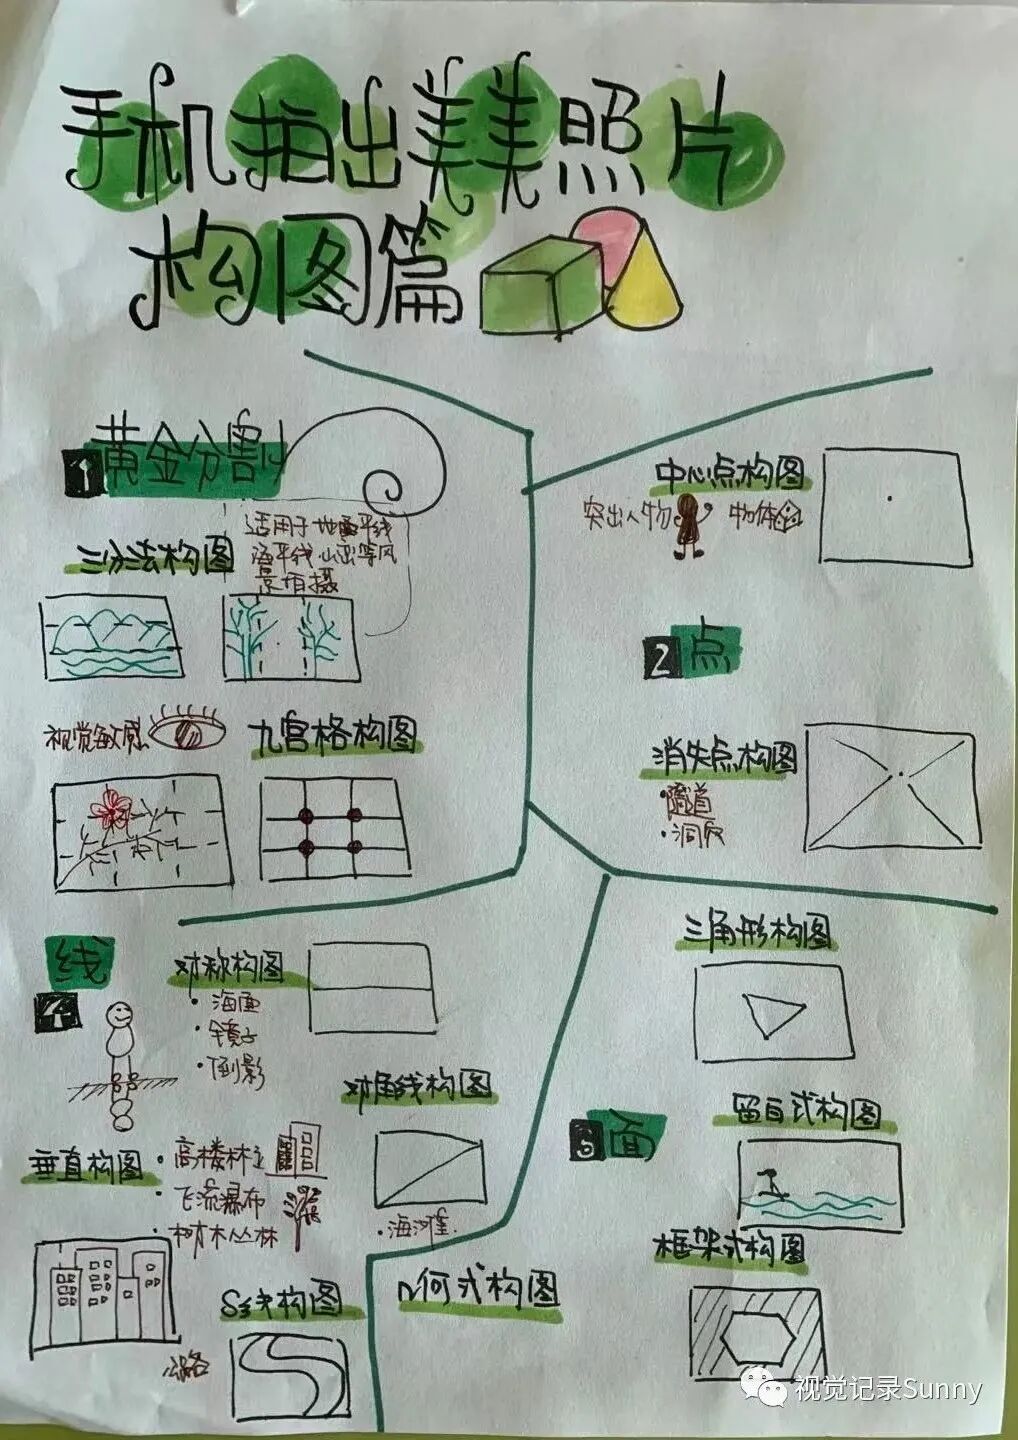 手机拍出美美照片
构图篇
1 黄金分割
三分法构图
适用于地平线
海平线、山峦等风
景拍摄
视觉敏感
九宫格构图
中心点构图
突出人物 物体
2 点
消失点构图
·隧道
·洞穴
线
4
对称构图
·海面
·镜子
·倒影
对角线构图
·海滩
垂直构图
·高楼林立
·飞流瀑布
·树木丛林
S线构图
公路
三角形构图
3 面
留白式构图
框架式构图
几何式构图
视觉记录Sunny